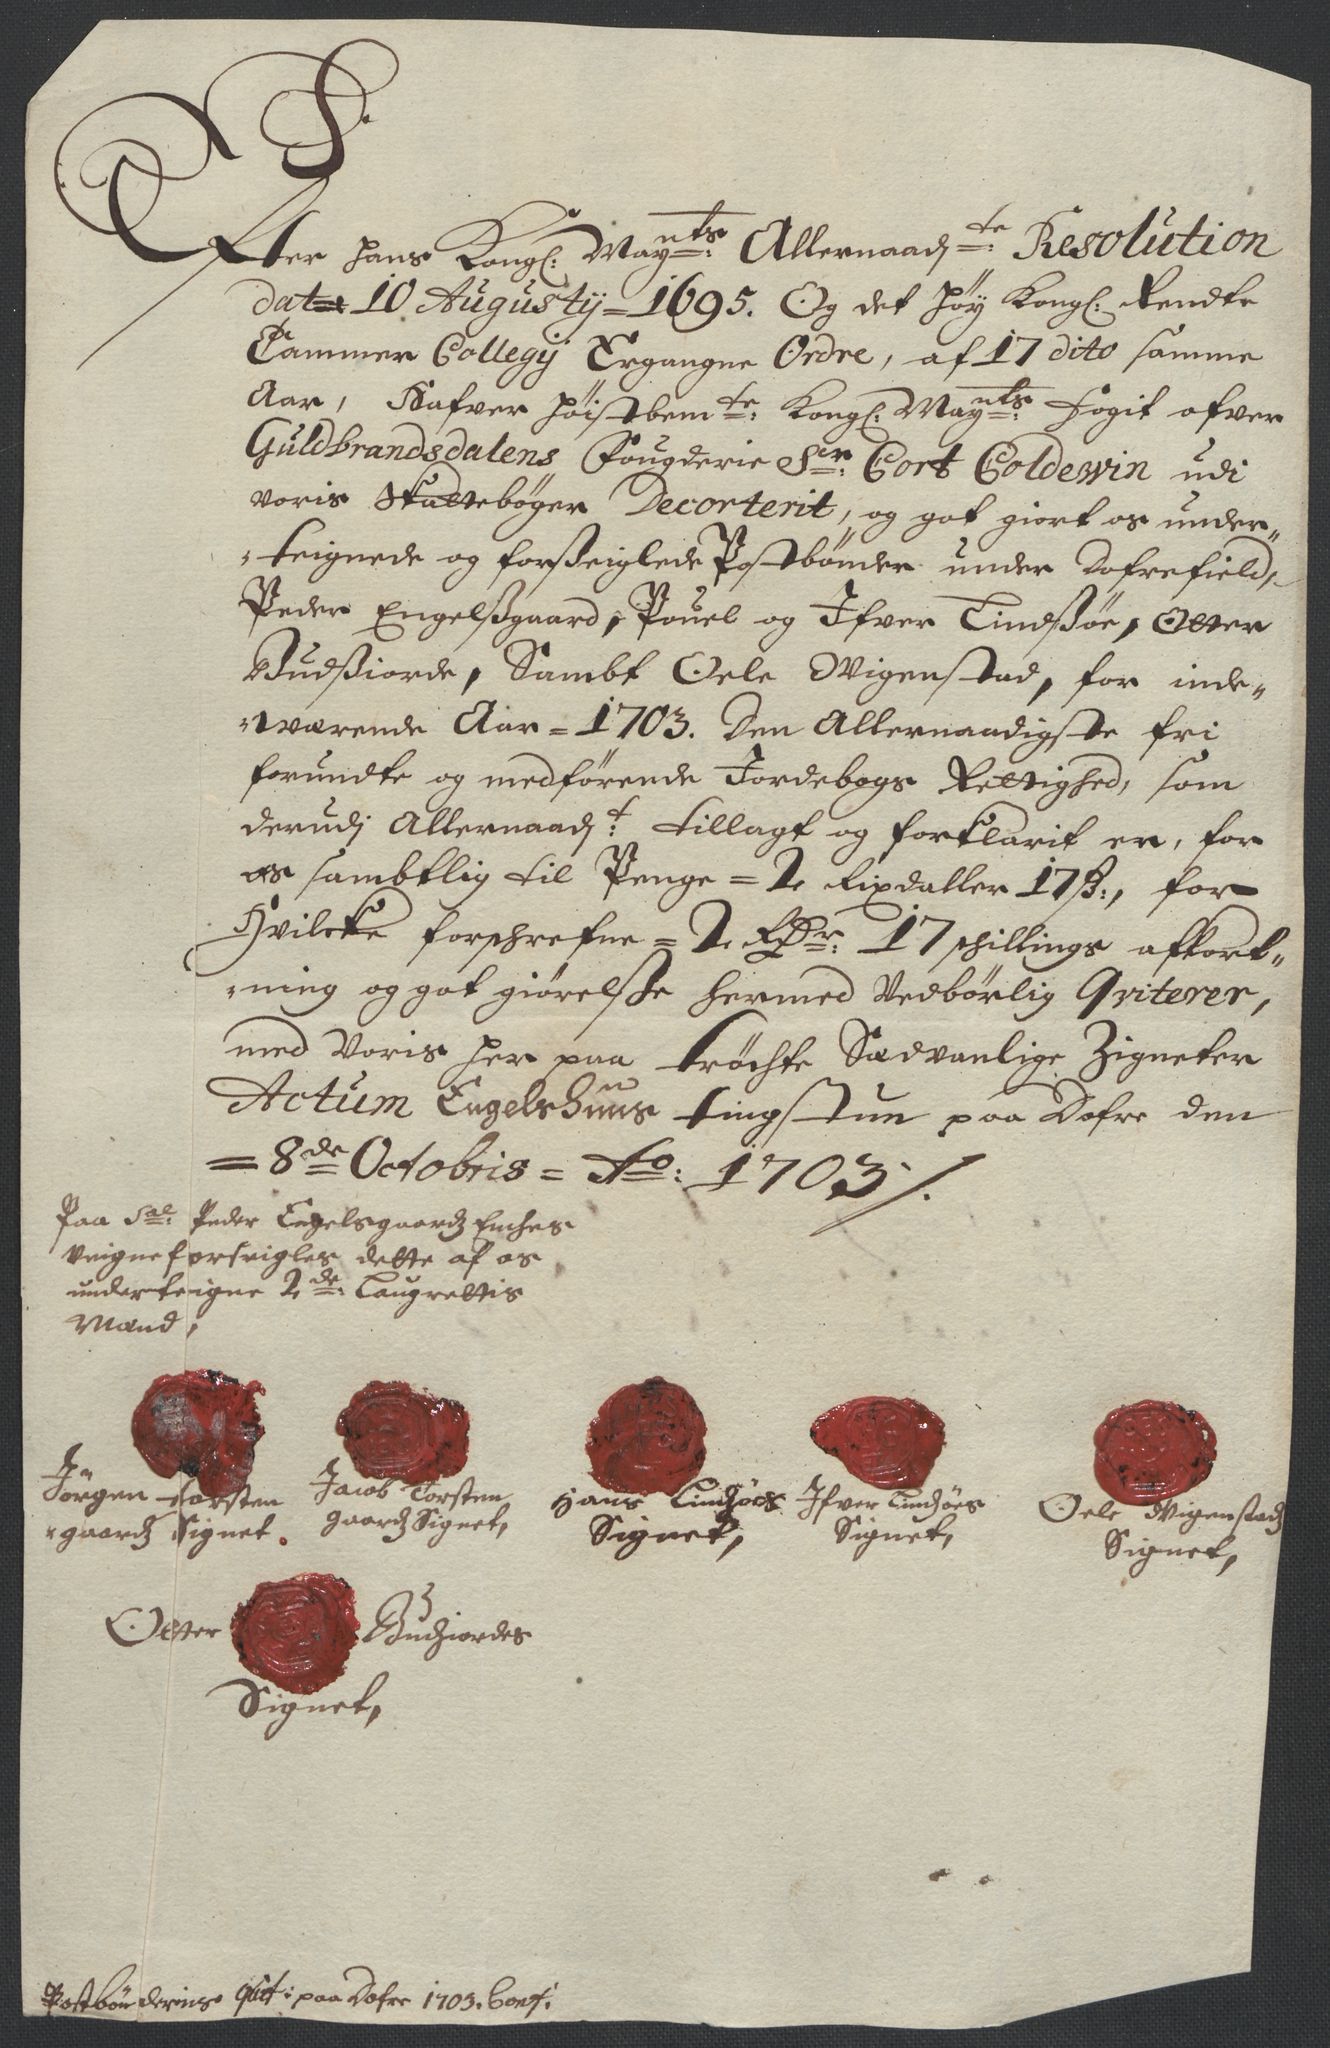 Efter hans Kongl: Mayts: Allernaadte: Resolution
dat: 10 Augustij = 1695. Og det høy Kongl: Rendte
Cammer Collegij Ergangne Ordre, af 17 dito samme
Aar, Hafver høistbemte: Kongl: Mayts: fogit ofver
Guldbrandsdalens Fougderie Sr: Cort Coldewin udi
voris Skattebøger Decorterit, og got giort os under-
-teignede og forseiglede Postbønder under Dofrefield,
Peder Engelsgaard, Pouel og Ifver Lindsøe, Otter
Budsiorde, Sambt Oele Wigenstad, for inde-
-værende Aar = 1703. Den Allernaadigste fri
forundte og medførende Jordebogs Rettighed, som
derudj Allernaadt: tillagt og forklarit er, for
os sambtlig til Penge = 2 Rixdaller 17 ß:, for
Hvilcke forschrefne = 2 Rdr: 17 schillings afkort-
-ning og got giørelse hermed Vedbørlig Qviterer,
med Voris her paa trøchte Sædvanlige Zigneter
Actum Engelshuus tingstue paa Dofre den
= 8de Octobris = Ao: 1703 /.
Paa Sal: Peder Engelsgaards Enches
veigne forseigles dette af os
underteigne 2de: Laugrettis
Mænd,
Jørgen Torsten
-gaards Signet.
Jacob Torsten
gaards Signet,
Hans Lindsøes
Signet,
Ifver Lindsøes
Signet,
Oele Wigenstads
Signet,
Otter Budsiordes
Signet,
Postbøndernis qvit: paa Dofre 1703.